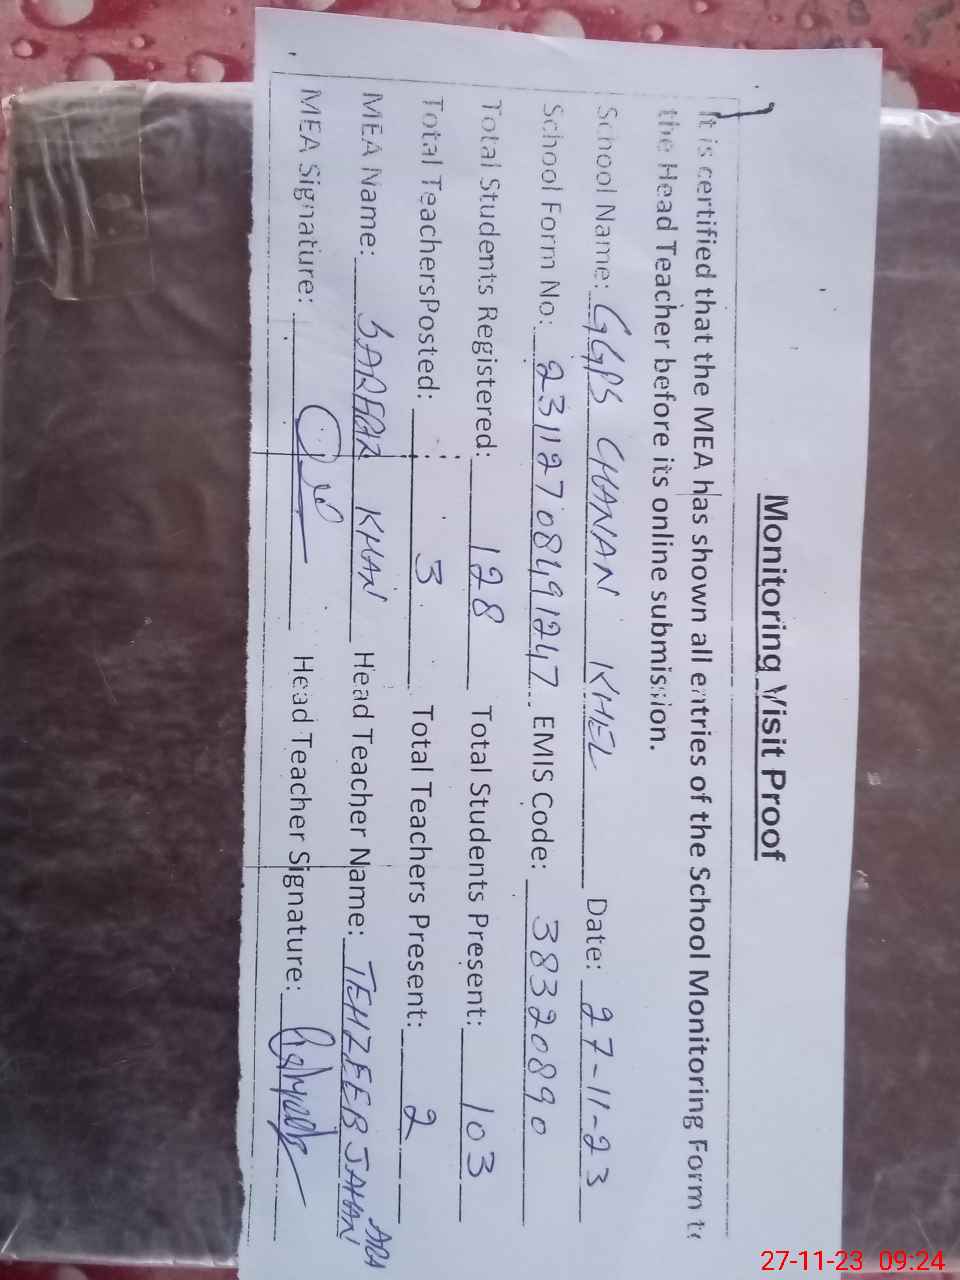 Monitoring Visit Proof
It is certified that the MEA has shown all entries of the School Monitoring Form to
the Head Teacher before its online submission.
School Name: GGPS CHANAN KHEL Date: 27-11-23
School Form No: 23112708491247 EMIS Code: 38320890
Total Students Registered: 128 Total Students Present: 103
Total TeachersPosted: 3 Total Teachers Present: 2
MEA Name: SARDAR KHAN Head Teacher Name: TEHZEEB JAHAN ARA
MEA Signature: Head Teacher Signature:
27-11-23 09:24